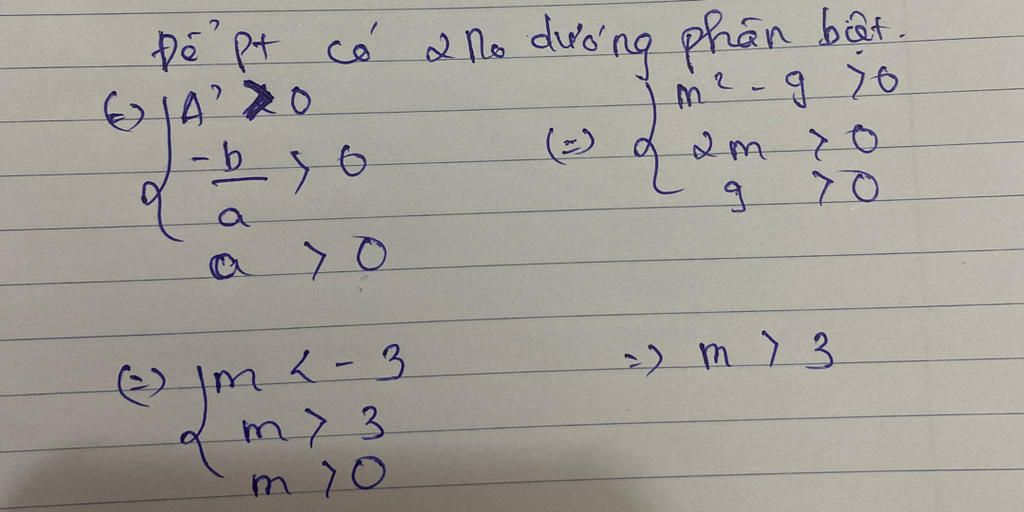 Để pt có 2 no dương phân biệt.
(=) { Δ' > 0
-b/a > 0
a > 0
(=) { m² - 9 > 0
2m > 0
9 > 0
(=) { m < -3
m > 3
m > 0
=> m > 3